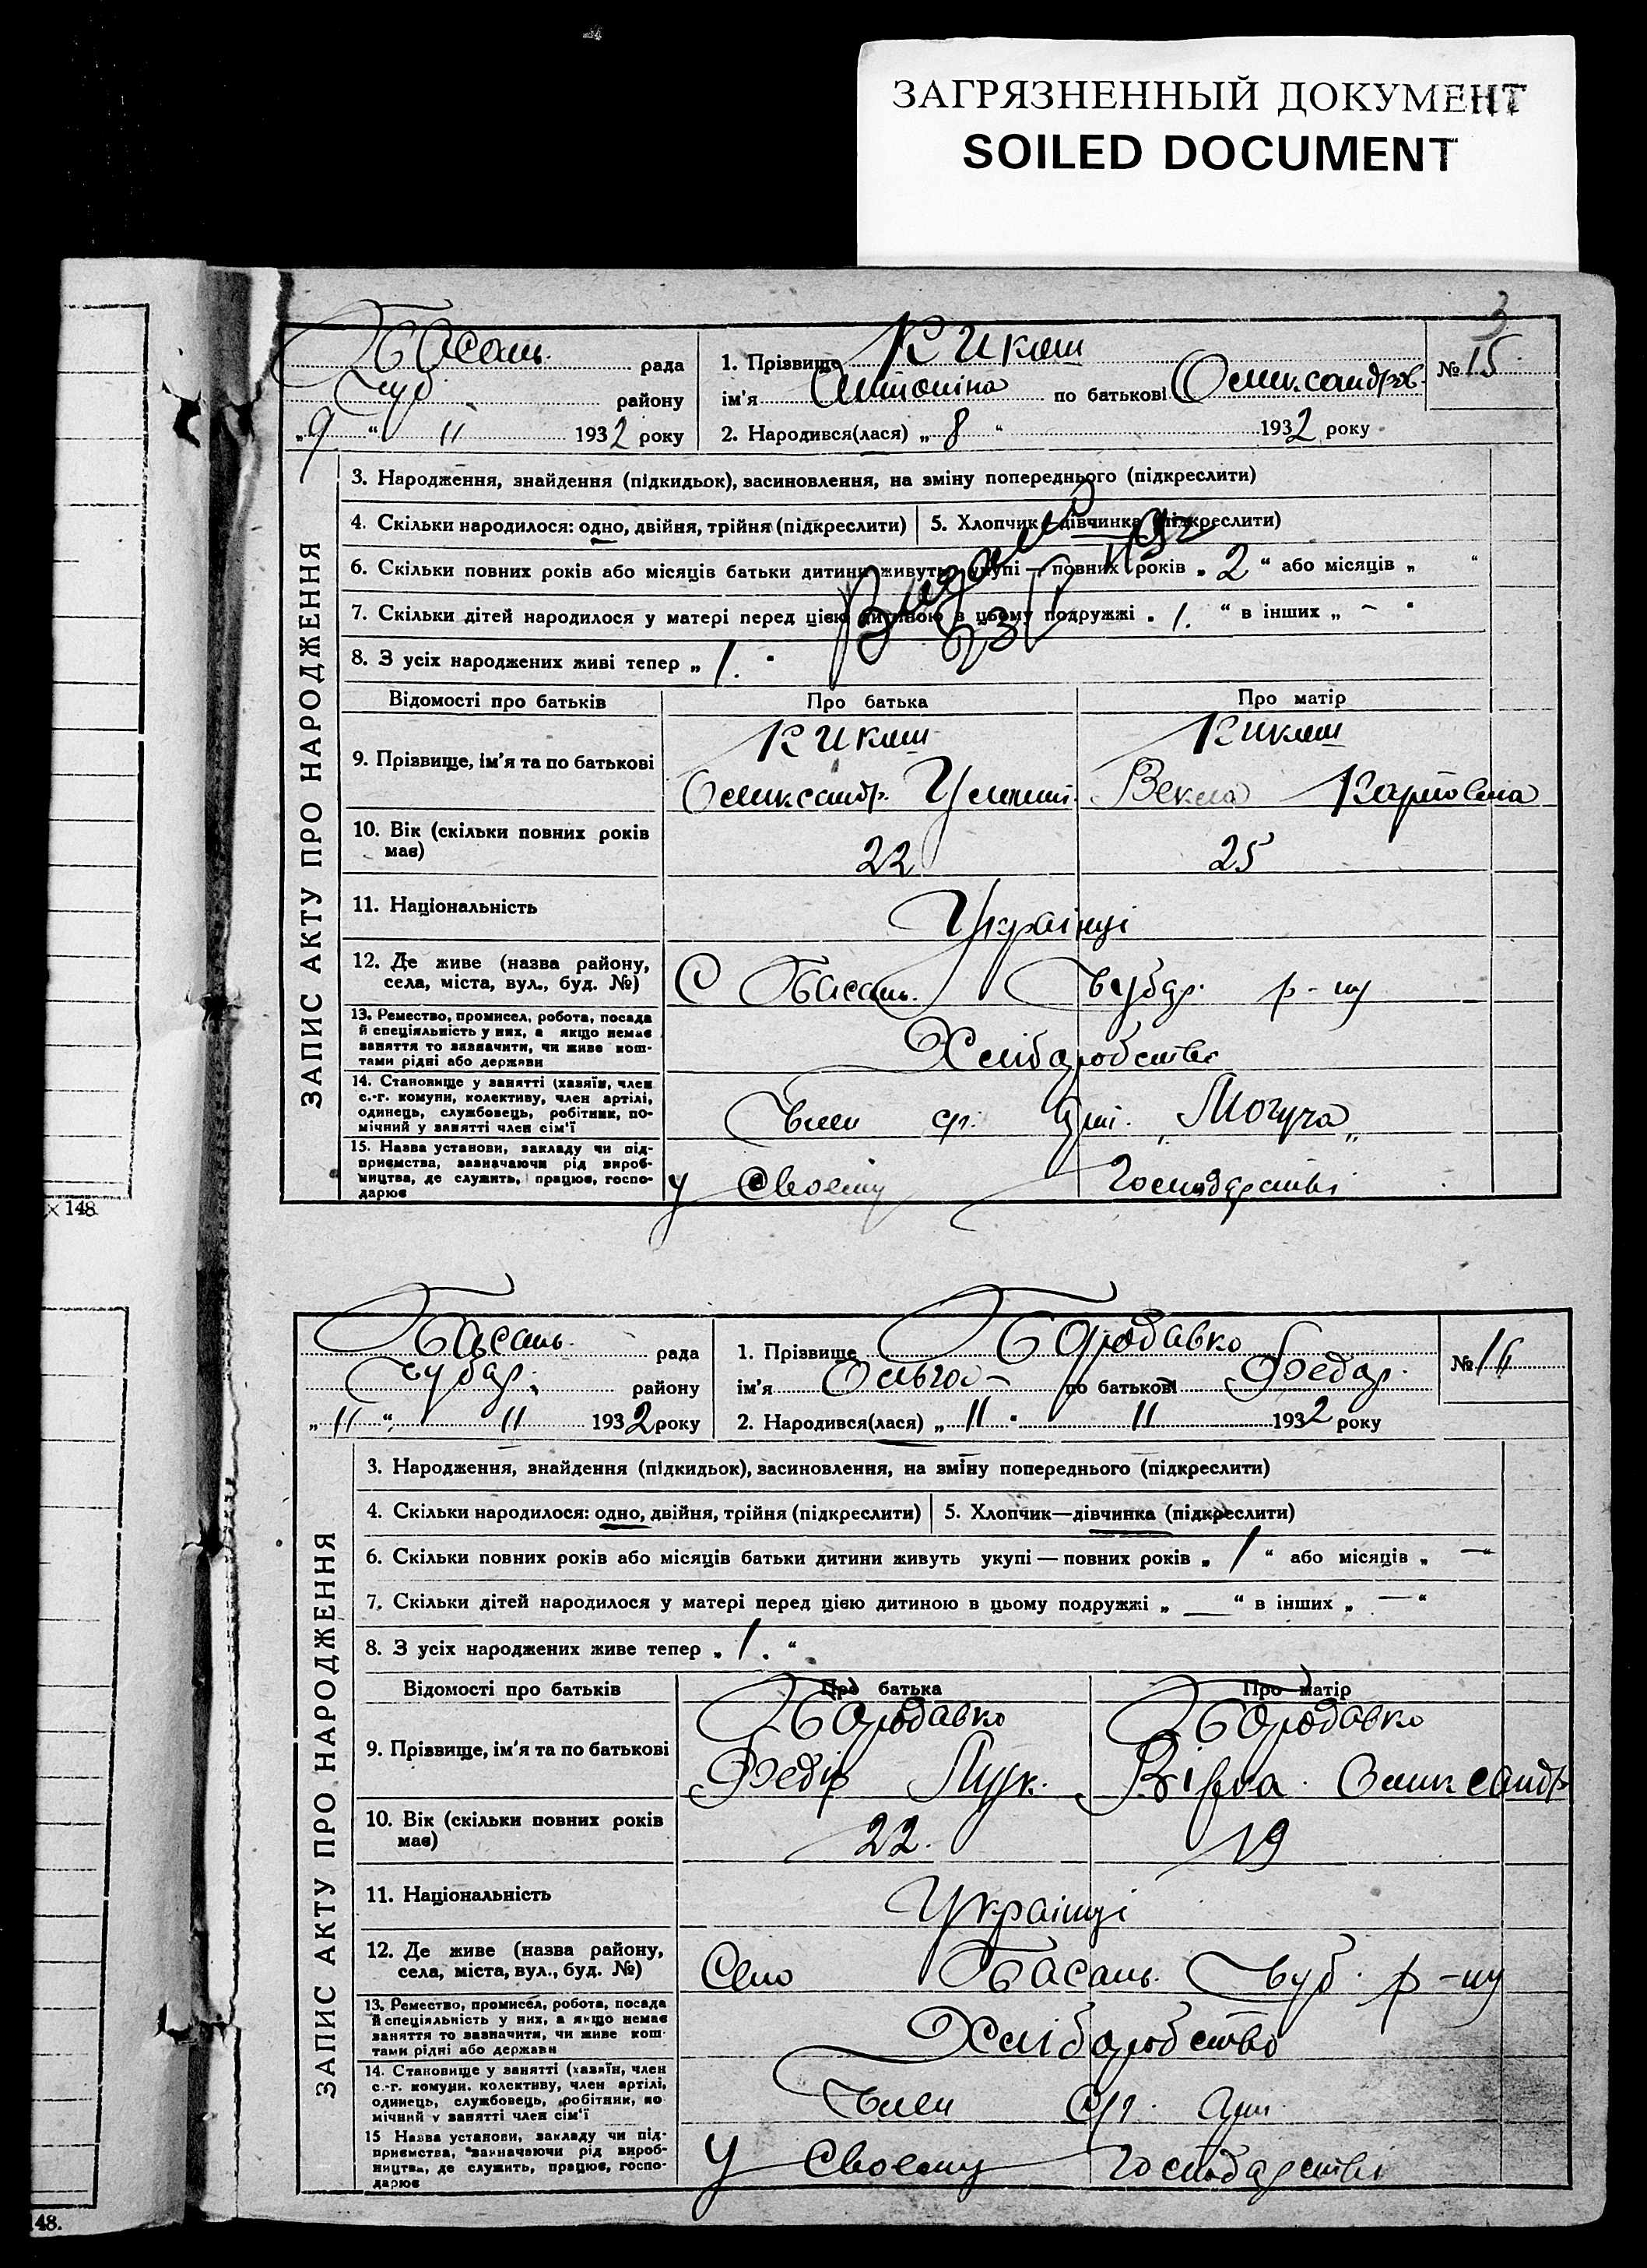 ЗАГРЯЗНЕННЫЙ ДОКУМЕНТ
SOILED DOCUMENT
3
Басань рада
Чуб. району
„9“ II 1932 року
1. Прізвище Кикот
ім'я Антоніна по батькові Олександров.
№ 15
2. Народився(лася) „8“ 1932 року
ЗАПИС АКТУ ПРО НАРОДЖЕННЯ
3. Народження, знайдення (підкидьок), засиновлення, на зміну попереднього (підкреслити)
4. Скільки народилося: одно, двійня, трійня (підкреслити) 5. Хлопчик—дівчинка (підкреслити)
6. Скільки повних років або місяців батьки дитини живуть укупі — повних років „2“ або місяців „ “
7. Скільки дітей народилося у матері перед цією дитиною в цьому подружжі „1.“ в інших „—“
8. З усіх народжених живі тепер „1.“
Відомості про батьків Про батька Про матір
9. Прізвище, ім'я та по батькові
Олександр. Векла Карповна
10. Вік (скільки повних років має) 22 25
11. Національність Українці
12. Де живе (назва району, села, міста, вул., буд. №) С Басань. Чубар. р-ну
13. Ремество, промисел, робота, посада й спеціяльність у них, а якщо немає заняття то зазначити, чи живе коштами рідні або держави Хліборобство
14. Становище у занятті (хазяїн, член с.-г. комуни, колективу, член артілі, одинець, службовець, робітник, помічний у занятті член сім'ї Член ср. Арт. „Могуча„
15. Назва установи, закладу чи підприємства, зазначаючи рід виробництва, де служить, працює, господарює У Своему Господарстві
× 148.
Басань рада
Чубар. району
„11“ II 1932 року
1. Прізвище Бородавко
ім'я Ольга - по батькові Федор.
№ 16
2. Народився(лася) „11“ II 1932 року
ЗАПИС АКТУ ПРО НАРОДЖЕННЯ
3. Народження, знайдення (підкидьок), засиновлення, на зміну попереднього (підкреслити)
4. Скільки народилося: одно, двійня, трійня (підкреслити) 5. Хлопчик—дівчинка (підкреслити)
6. Скільки повних років або місяців батьки дитини живуть укупі — повних років „1“ або місяців „—“
7. Скільки дітей народилося у матері перед цією дитиною в цьому подружжі „—“ в інших „—“
8. З усіх народжених живе тепер „1.“
Відомості про батьків Про батька Про матір
9. Прізвище, ім'я та по батькові Бородавко Бородавко
Федір Лук. Вівла. Олександр
10. Вік (скільки повних років має) 22. 19
11. Національність Українці
12. Де живе (назва району, села, міста, вул., буд. №) Село Басань. Чуб. р-ну
13. Ремество, промисел, робота, посада й спеціяльність у них, а якщо немає заняття то зазначити, чи живе коштами рідні або держави Хліборобство
14. Становище у занятті (хазяїн, член с.-г. комуни, колективу, член артілі, одинець, службовець, робітник, помічний у занятті член сім'ї Член ср. арт.
15 Назва установи, закладу чи підприємства, зазначаючи рід виробництва, де служить, працює, господарює У Своему Господарстві
148.